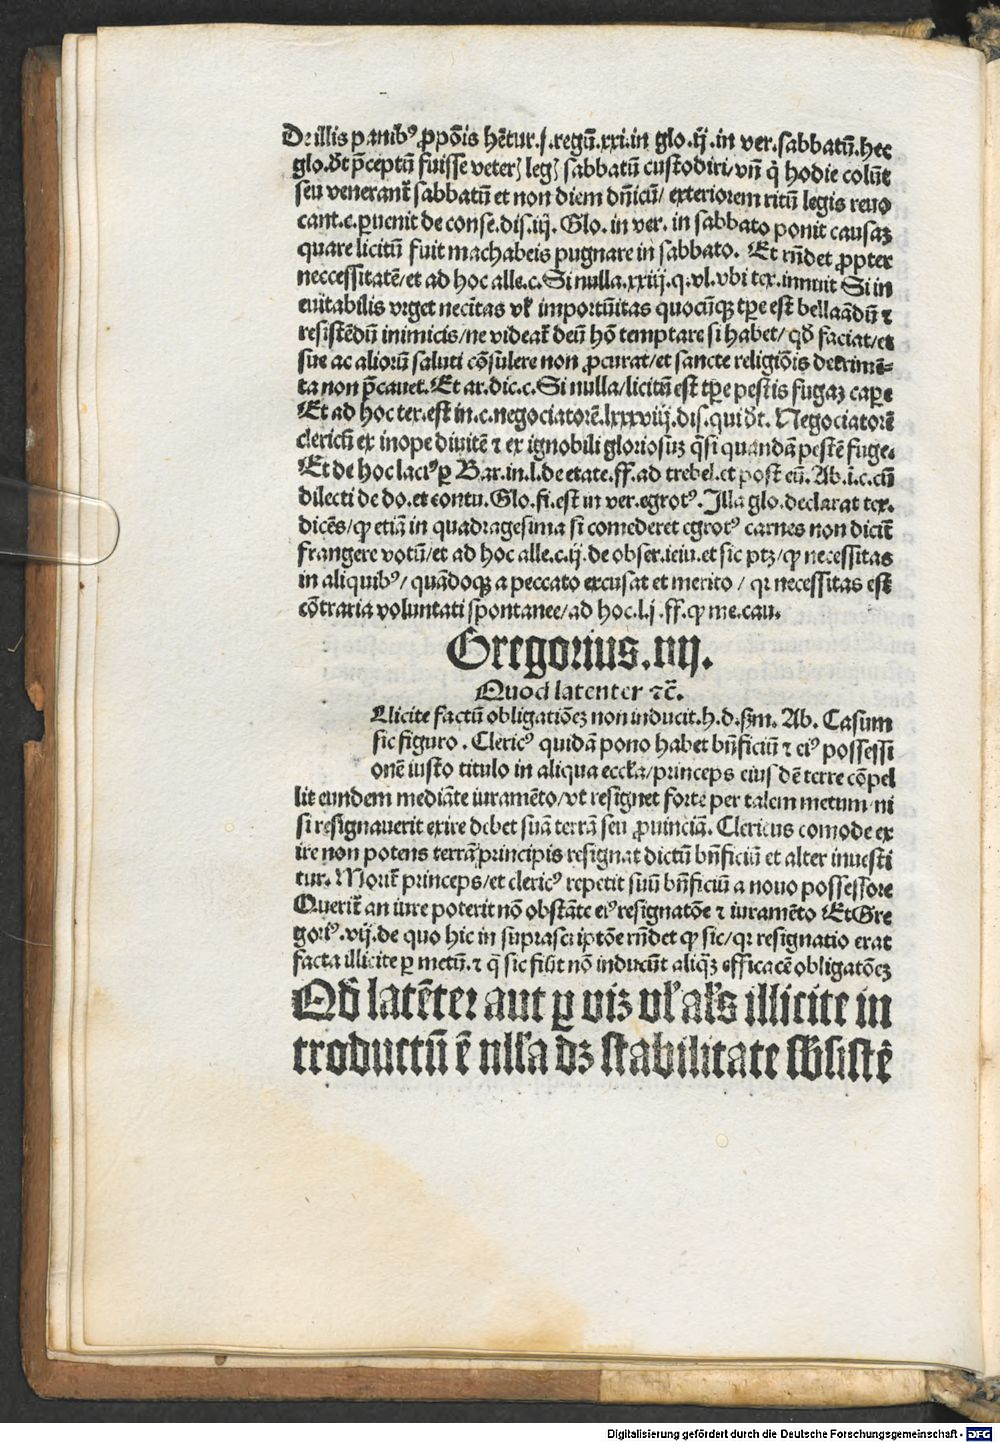 De illis panibꝰ ꝓpōis hētur.j.regū.xxi.in glo.ij.in ver.sabbatū.hec
glo.dt p̄ceptū fuisse veteꝝ legꝫ sabbatū custodiri/vn̄ q̇ hodie colūt
seu venerant᷑ sabbatū et non diem dn̄icū/ exteriorem ritū legis reuo
cant.c.ꝑuenit de conse.dis.iij. Glo. in ver. in sabbato ponit causaꝫ
quare licitū fuit machabeis pugnare in sabbato. Et rn̄det ꝓpter
neccessitatē/et ad hoc alle.c.Si nulla.xxiij.q.vl.vbi tex.innuit Si in
euitabilis vrget necītas vl᷑ importūitas quocūqꝫ tꝑe est bellaādū ⁊
resistēdū inimicis/ne videat᷑ deū hō temptare si habet/qd̄ faciat/et
sue ac aliorū saluti cōsulere non ꝓcurat/et sancte religiōis detrimē-
ta non p̄cauet.Et ar.dic.c.Si nulla/licitū est tꝑe pestis fugaꝫ caꝑe
Et ad hoc tex.est in.c.negociatorē.lxxxviij.dis.qui dt. Negociatorē
clericū ex inope diuitē ⁊ ex ignobili gloriosuꝫ q̄si quandā pestē fuge.
Et de hoc lacꝰ ꝑ Bar.in.l.de etate.ff.ad trebel.et post eū.Ab.i.c.cū
dilecti de do.et contu.Glo.fi.est in ver.egrotꝰ.Illa glo.declarat tex.
dicēs/ꝙ etiā in quadragesima si comederet egrotꝰ carnes non dicit᷑
frangere votū/et ad hoc alle.c.ij.de obser.ieiu.et sic ptꝫ/ꝙ necessitas
in aliquibꝰ/ quādoqꝫ a peccato excusat et merito/ qꝛ necessitas est
cōtraria voluntati spontanee/ad hoc.l.j.ff.ꝙ me.cau.
Gregorius.iiij.
Quod latenter ⁊c̄.
Llicite factū obligatiōeꝫ non inducit.h.d.ẜm. Ab. Casum
sic figuro. Clericꝰ quidā pono habet bn̄ficiū ⁊ eiꝰ possessi
onē iusto titulo in aliqua eccl᷑a/princeps eius dē terre cōpel
lit eundem mediāte iuramēto/vt resignet forte per talem metum/ni
si resignauerit exire debet suā terrā seu ꝓuinciā. Clericus comode ex
ire non potens terrā principis resignat dictū bn̄ficiū et alter inuesti
tur. Morit᷑ princeps/et clericꝰ repetit suū bn̄ficiū a nouo possessore
Querit᷑ an iure poterit nō obstāte eiꝰ resignatōe ⁊ iuramēto Et Gre
goriꝰ.vij.de quo hic in suprascriptōe rn̄det ꝙ sic/qꝛ resignatio erat
facta illicite ꝑ metū.⁊ q̄ sic fiūt nō inducūt aliq̄ꝫ efficacē obligatōeꝫ
Qd̄ latēter aut ꝑ viꝫ vl᷑ al᷑s illicite in
troductū ē nll᷑a dꝫ stabilitate sb̄sistē
Digitalisierung gefördert durch die Deutsche Forschungsgemeinschaft - DFG